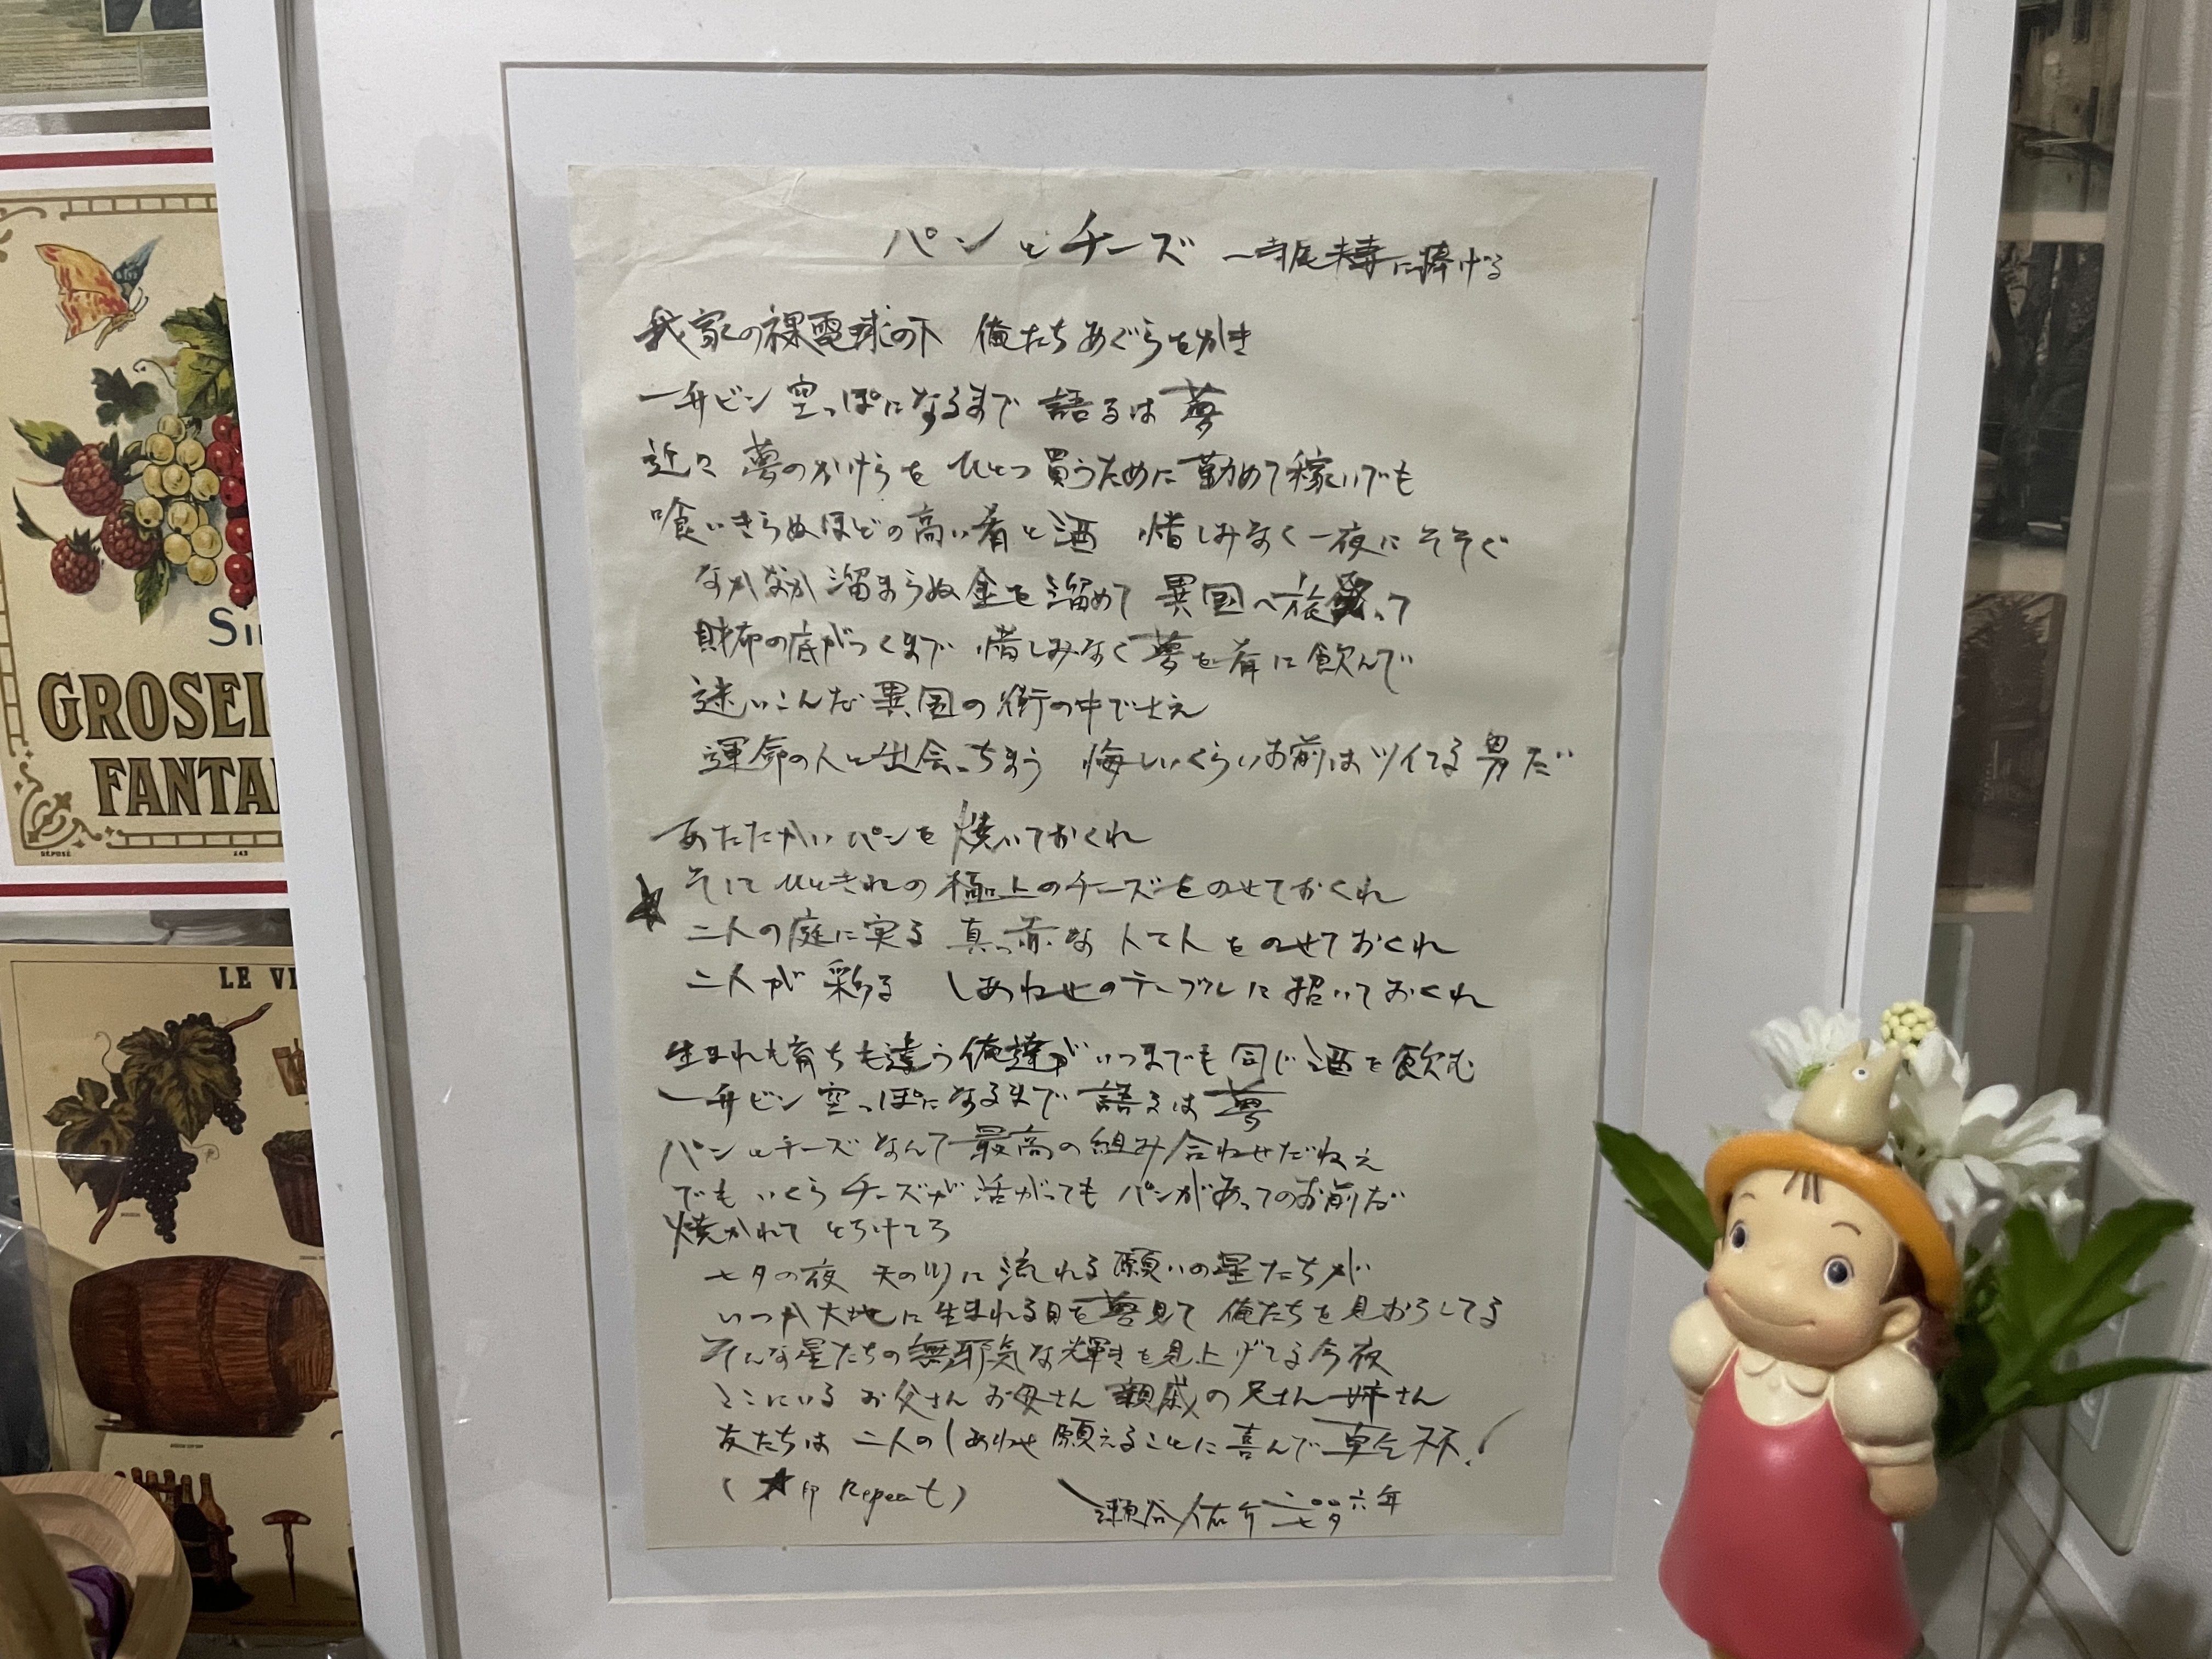 Si
GROSEI
FANTA
DÉPOSÉ
243
LE VI
パンとチーズ 〜寺尾夫妻に捧げる
我家の裸電球の下 俺たちあぐらをかき
一升ビン空っぽになるまで 語るは夢
近々 夢のかけらを ひとつ買うために勤めて稼いでも
喰いきらぬほどの高い肴と酒 惜しみなく一夜にそそぐ
なかなか溜まらぬ金を溜めて 異国へ旅って
財布の底がつくまで 惜しみなく夢を肴に飲んで
迷いこんだ異国の街の中でさえ
運命の人と出会っちまう 悔しいくらいお前はツイてる男だ
あたたかいパンを焼いておくれ
★ そしてひときれの極上のチーズをのせておくれ
二人の庭に実る 真っ赤なトマトをのせておくれ
二人が彩る しあわせのテーブルに招いておくれ
生まれも育ちも違う俺達が いつまでも同じ酒を飲む
一升ビン空っぽになるまで 語るは夢
パンとチーズなんて最高の組み合わせだねえ
でもいくらチーズが活がっても パンがあってのお前だ
焼かれて とろけてろ
七夕の夜 天の川に流れる願いの星たちが
いつか大地に生まれる日を夢見て 俺たちを見おろしてる
そんな星たちの無邪気な輝きを見上げてる今夜
ここにいる お父さん お母さん 親戚の兄さん姉さん
友たちは 二人のしあわせ願えることに喜んで乾杯!
(★印 Repeat)
瀬谷佑介 二〇〇六年
七夕